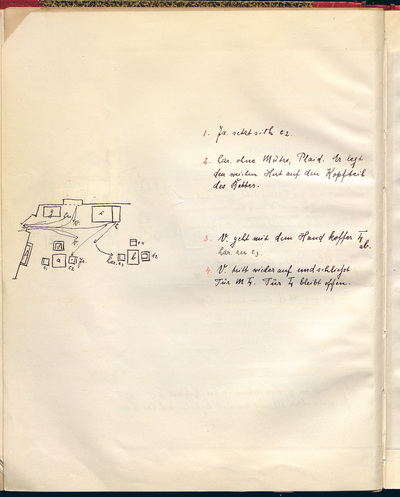 1. Ja. setzt sich e2.
2. Har. ohne Mütze, Plaid. Er legt
den weißen Hut auf den Kopfteil
des Bettes.
3. V. geht mit dem Handkoffer ab.
Har. an e3.
4. V. tritt wieder auf und schließt
Tür M 4. Tür 4 bleibt offen.
g
i
a
e2
Ja.
Har. e3
b